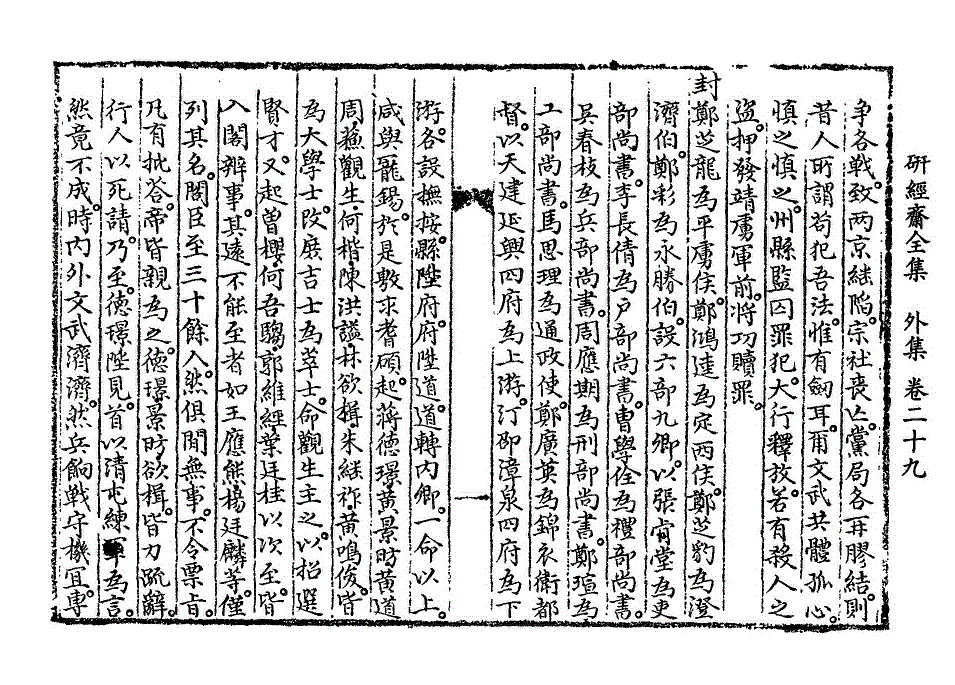 研經齋全集 外集 卷二十九
争各戰。致两京継陷。宗社喪亡。黨局各再膠結。則
昔人所謂苟犯吾法。惟有劒耳。爾文武共體孤心。
慎之慎之。州縣監囚罪犯。大行釋放。若有殺人之
盗。押發靖虜軍前。将功贖罪。
封鄭芝龍為平虜侯。鄭鴻逵為定西侯。鄭芝豹為澄
濟伯。鄭彩為永勝伯。設六部九卿。以張肯堂為吏
部尚書。李長倩為戶部尚書。曹學佺為禮部尚書。
吳春枝為兵部尚書。周應期為刑部尚書。鄭瑄為
工部尚書。馬思理為通政使。鄭廣英為錦衣衛都
督。以天建延興四府為上游。汀邵漳泉四府為下
游。各設撫按。縣陞府。府陞道。道轉内卿。一命以上。
咸與寵錫。於是敷求耆碩。起蒋德璟黃景昉黃道
周蘇觀生何楷陳洪謐林欲楫朱継祚黃鳴俊。皆
為大學士。改庶吉士為萃士。命觀生主之。以招選
賢才。又起曾櫻何吾騶郭維經葉廷桂以次至。皆
入閣辦事。其遠不能至者如王應熊楊廷麟等。僅
列其名。閣臣至三十餘人。然俱閒無事。不令票旨。
凡有批答。帝皆親為之。德璟景昉欲楫。皆力疏辭。
行人以死請。乃至。德璟陞見。首以清屯練軍為言。
然竟不成。時内外文武濟濟。然兵餉戰守機宜。專